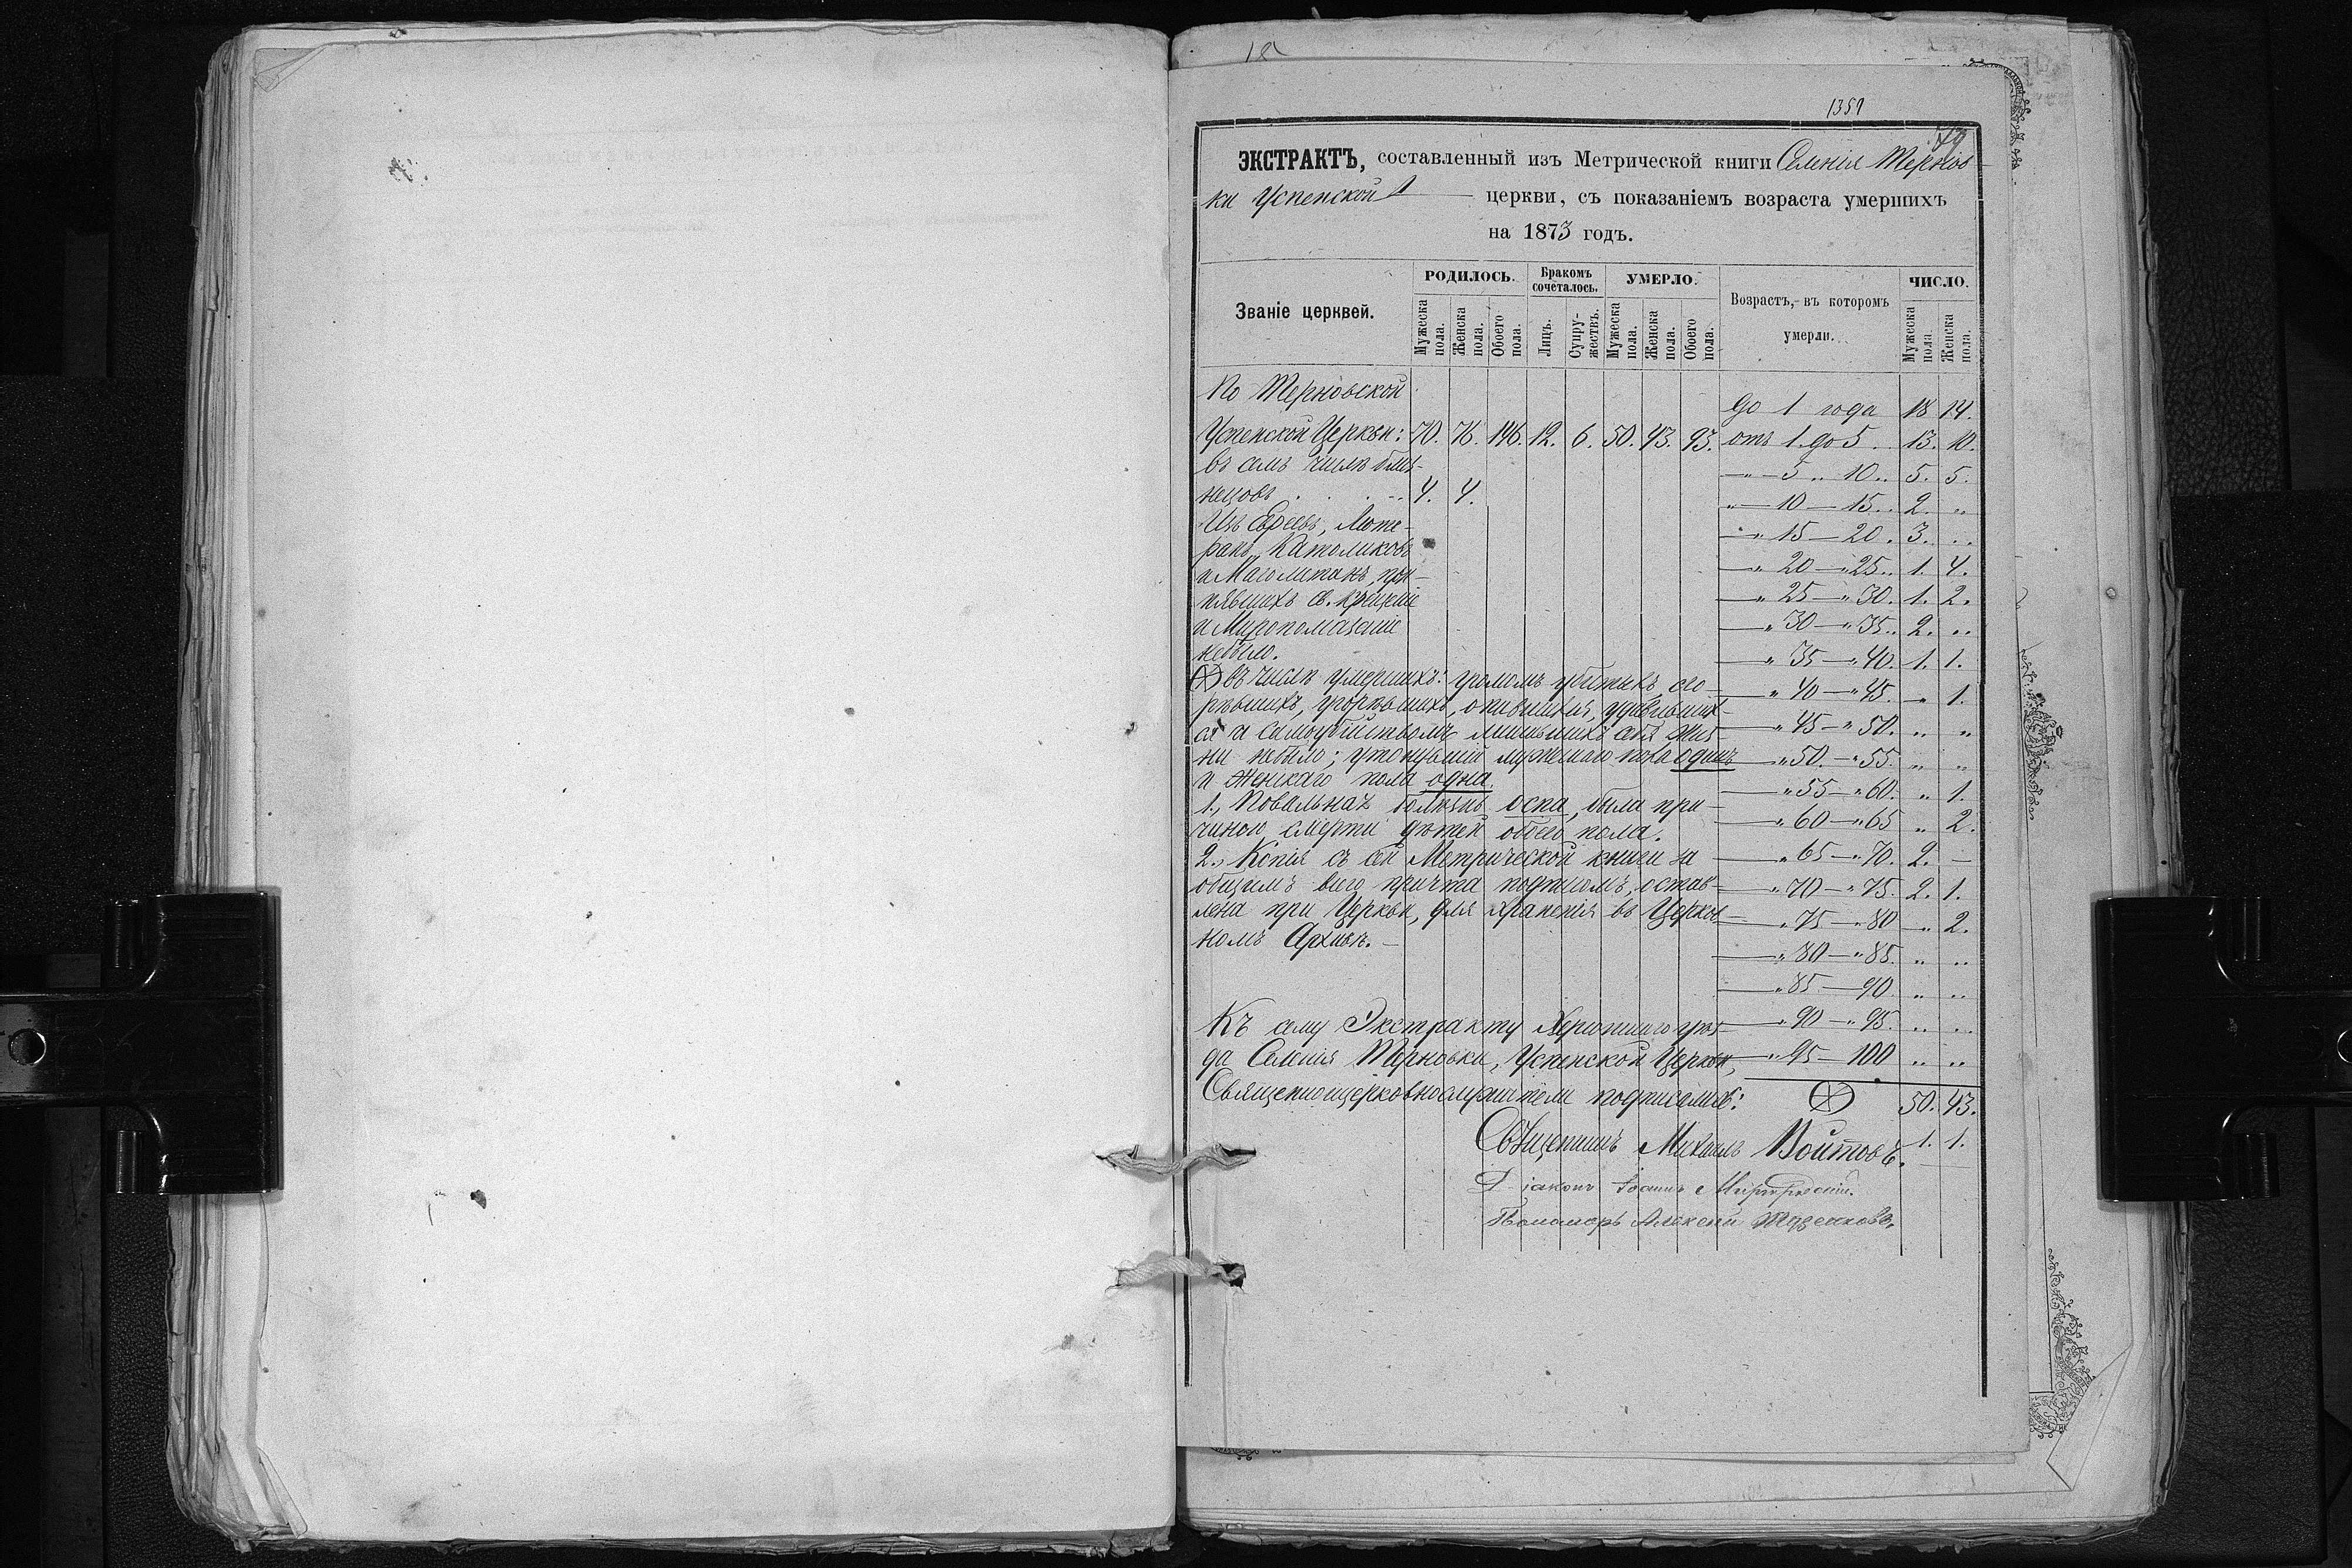 1359
ЭКСТРАКТЪ, составленный изъ Метрической книги Селенія Тернов-
ки Успенской церкви, съ показаніемъ возраста умершихъ
на 1873 годъ.
Званіе церквей.
РОДИЛОСЬ.
Мужеска пола.
Женска пола.
Обоего пола.
Бракомъ сочеталось.
Лицъ.
Супружествъ.
УМЕРЛО.
Мужеска пола.
Женска пола.
Обоего пола.
Возрастъ, въ которомъ
умерли.
ЧИСЛО.
Мужеска пола
Женска пола.
По Терновской
Успенской Церкви: 70. 76. 146. 12. 6. 50. 43. 93.
въ семъ числѣ близ-
нецовъ 4. 4.
Изъ Евреевъ, Люте-
ранъ, Католиковъ
и Магометанъ, при-
нявшихъ св. крещеніе
и Миропомазаніе
небыло.
въ числѣ умершихъ: громомъ убитыхъ, сго-
рѣвшихъ, угорѣвшихъ, опившихся, удавивших-
ся и самоубійствомъ лишившихъ себя жиз-
ни небыло; утонувшій мужескаго пола одинъ
и женскаго пола одна.
1., Повальная болѣзнь оспа, была при-
чиною смерти дѣтей обоего пола.
2., Копія съ сей Метрической книги за
общимъ всего причта подписомъ, остав-
лена при Церкви, для храненія въ Церков-
номъ Архивѣ.—
Къ сему Экстракту Херсонскаго уѣз-
да Селенія Терновки, Успенской Церкви,
Священноцерковнослужители подписались:
До 1 года 18 14.
отъ 1 до 5 13. 10.
—"—5 " 10 5. 5.
"—10—15 2. "
—" 15—20. 3. "
—" 20—"25 1. 4.
—" 25—"30. 1. 2.
—" 30—"35 2. "
—" 35—"40. 1. 1.
—" 40—"45 " 1.
—" 45—"50. " "
—" 50.—"55. " "
—" 55—"60. " 1.
—" 60—"65 " 2.
—" 65—"70. 2. —
—" 70—"75. 2. 1.
—" 75—"80 " 2.
—" 80—"85. " "
—" 85—90 " "
—" 90—"95. " "
—" 95—100 " "
50. 43.
1. 1.
Священникъ Михаилъ Войтовъ.
Діаконъ Іоаннъ
Пономарь Алексей